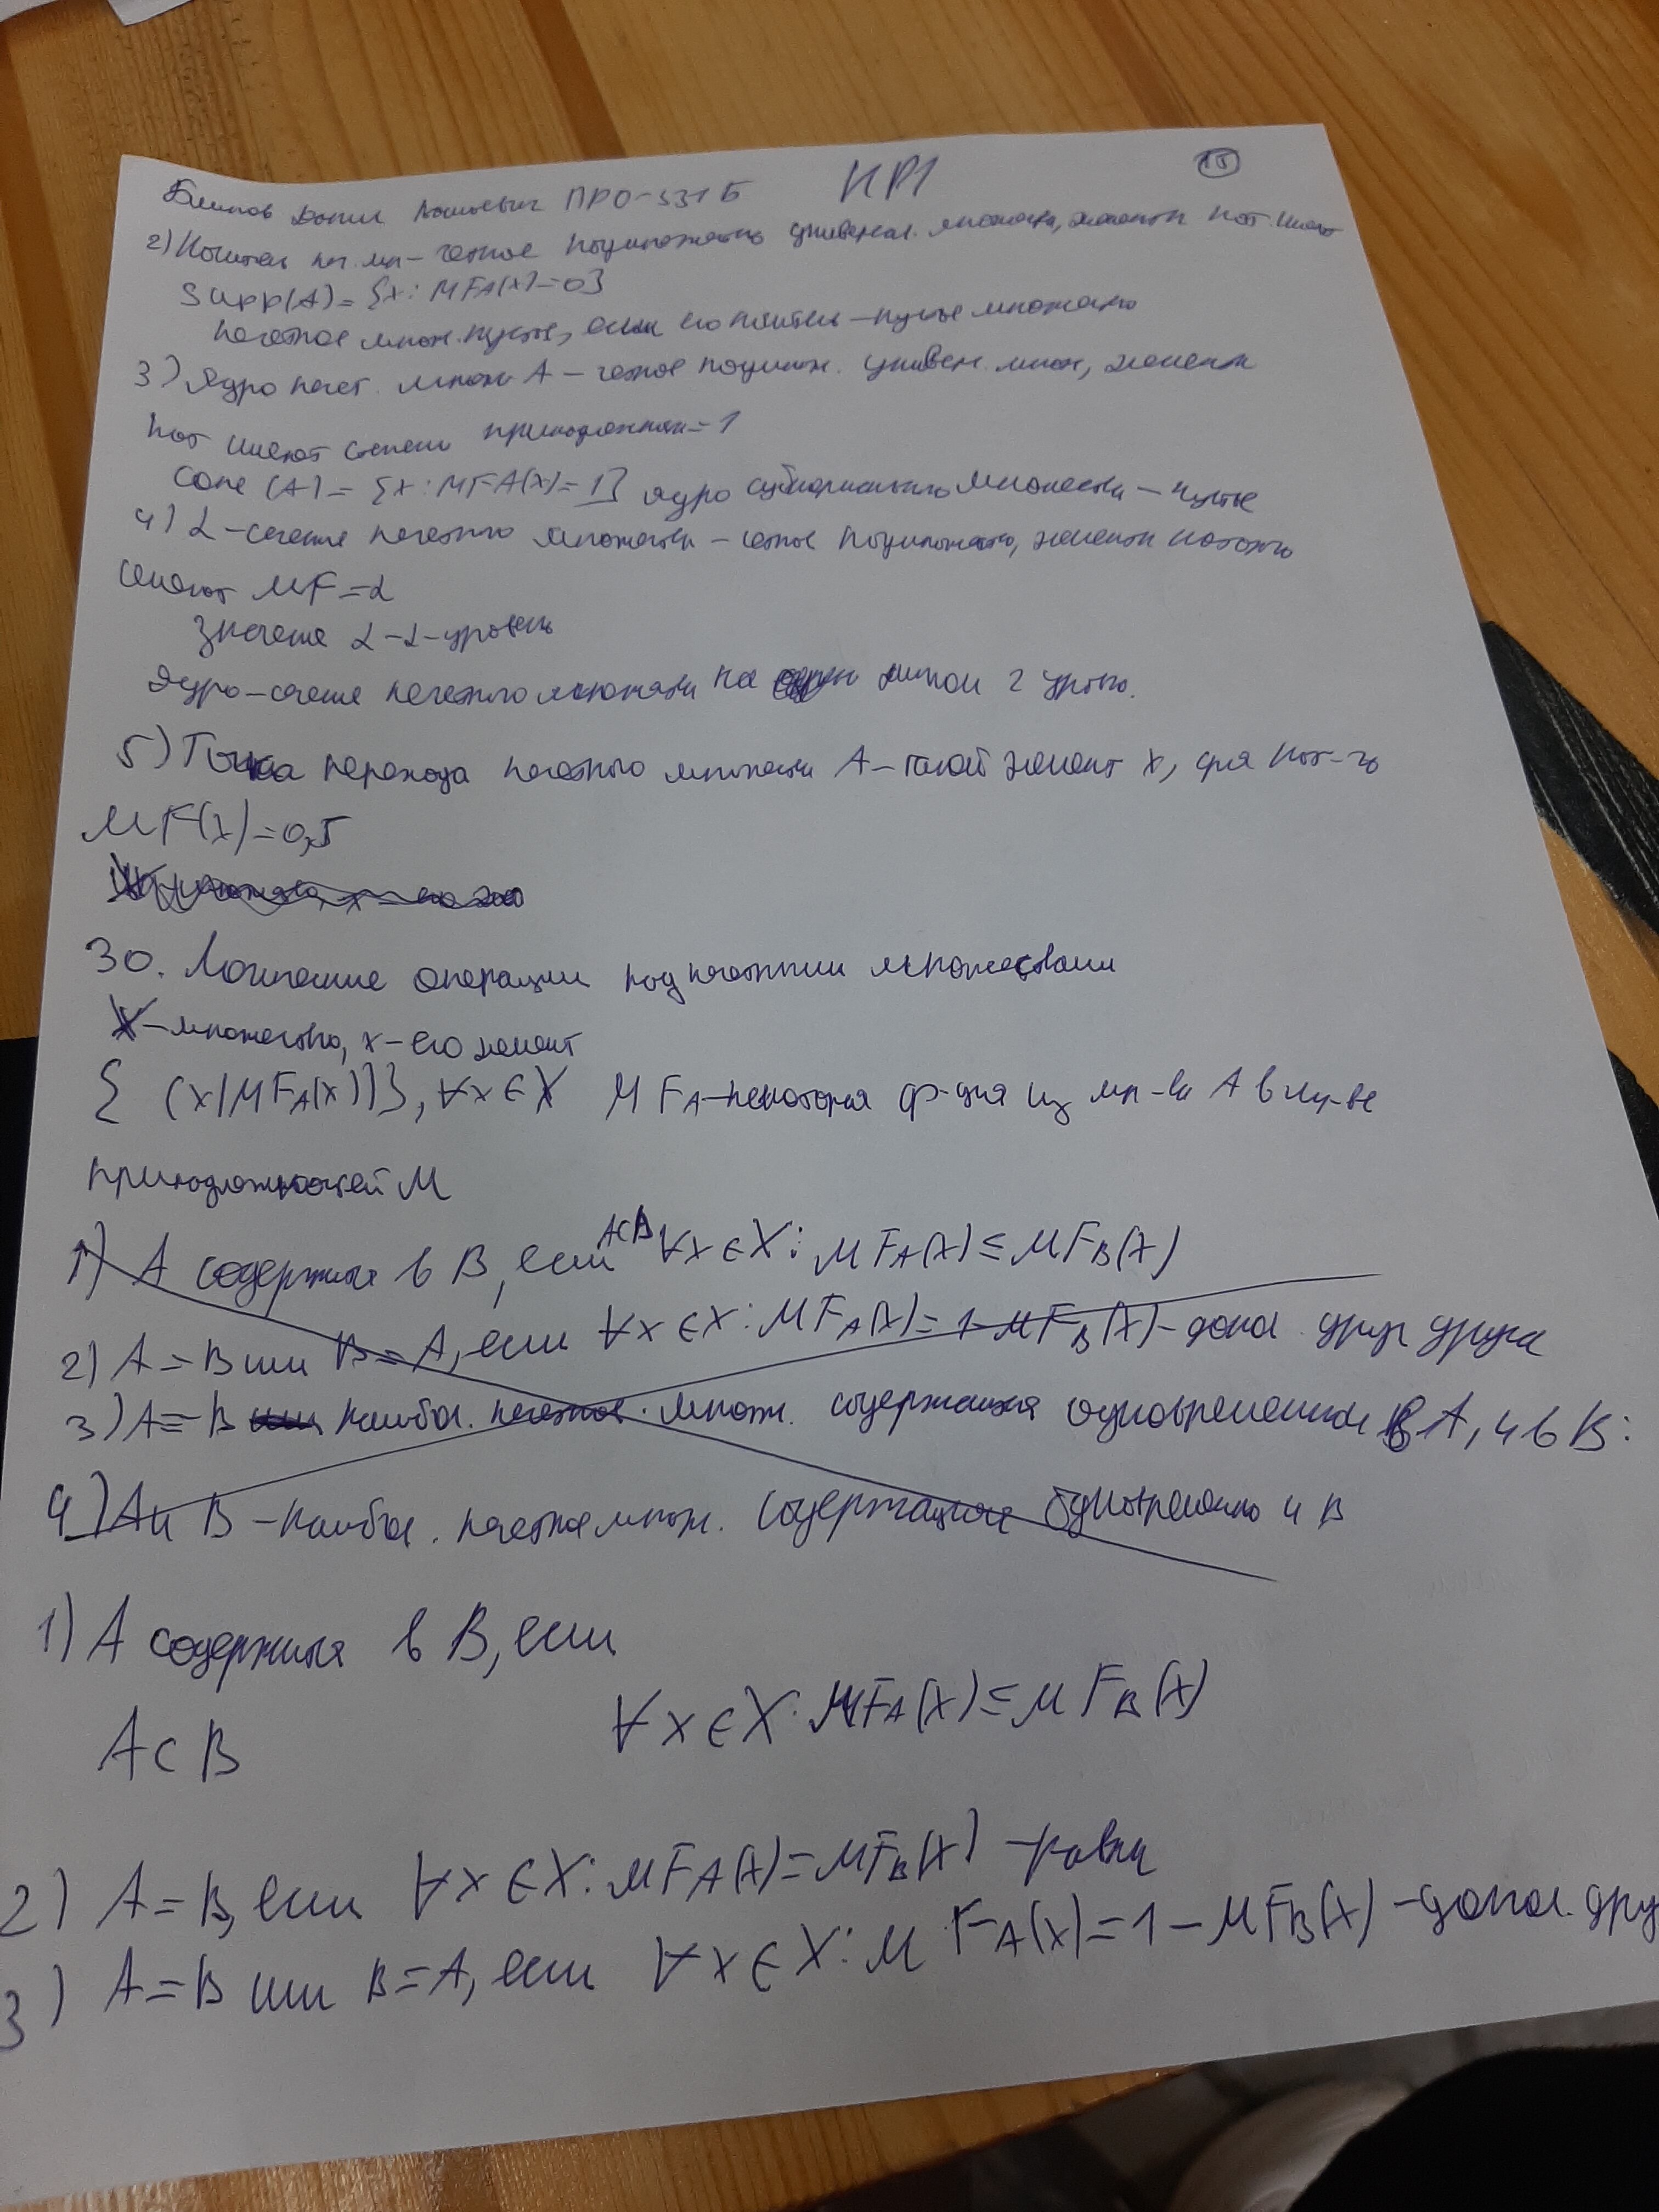 КР1
15
ПРО-331Б
2) Носитель неч. мн – четкое подмножество универсал. множества, элементы кот. имеют
Supp(A) = {x: MFA(x)=0}
нечеткое множ. пустое, если его носитель – пустое множество
3) Ядро нечет. множ A – четкое подмнож. универ. множ, элементы
кот имеют степень принадлежности=1
Core (A) = {x: MFA(x)=1} ядро субнормального множества – пустое
4) L-сечение нечеткого множества – четкое подмножество, элементы которого
имеют MF=L
Значение L – L-уровень
Ядро – сечение нечеткого множества на уровн.
5) Точка перехода нечеткого множества A – такой элемент x, для кот-го
MF(x)=0,5
30. Логические операции над нечеткими множествами
X – множество, x – его элемент
{ (x|MFA(x))}, ∀x∈X MFA – некоторая ф-ция из мн-ва A в пр-ве
принадлежностей M
1) A содержится в B, если A⊂B ∀x∈X: MFA(x)≤MFB(x)
2) A=B или B=A, если ∀x∈X: MFA(x)=1-MFB(x) – допол. друг друга
3) A=B наибол. нечеткое множ. содержащееся одновременно в A, и в B:
4) A и B – наибол. нечеткое множ. содержащееся одновременно и в
1) A содержится в B, если
A⊂B ∀x∈X: MFA(x)≤MFB(x)
2) A=B, если ∀x∈X: MFA(x)=MFB(x) – равны
3) A=B или B=A, если ∀x∈X: MFA(x)=1-MFB(x) – допол. дру